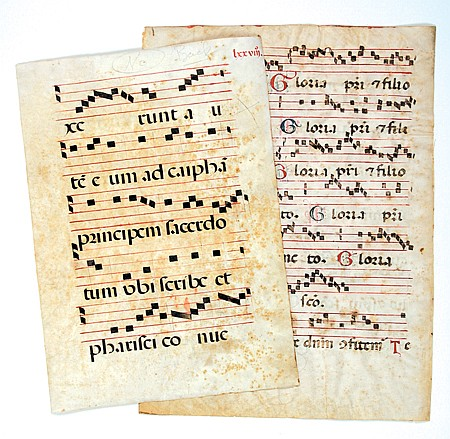 lxxviii
xe runt a u
tē e um ad caiphā
principem sacerdo
tum ubi scribe et
pharisei co nue
Gloria pr̄i ⁊ filio
Gloria pr̄i ⁊ filio
Gloria pr̄i ⁊ filio
to. Gloria pr̄i
to. Gloria
sco.
Te